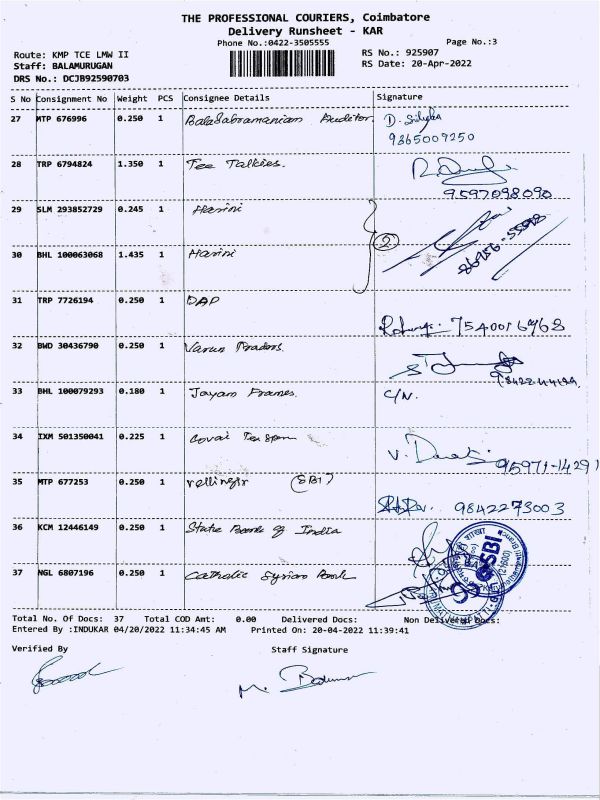 THE PROFESSIONAL COURIERS, Coimbatore
Delivery Runsheet - KAR
Phone No.:0422-3505555
Page No.:3
Route: KMP TCE LMW II
RS No.: 925907
Staff: BALAMURUGAN
RS Date: 20-Apr-2022
DRS No.: DCJB92590703
S No Consignment No Weight PCS Consignee Details Signature
27 MTP 676996 0.250 1 BalaSabramanian Auditor.
9365009250
28 TRP 6794824 1.350 1 Tee Talkies.
9597098090
29 SLM 293852729 0.245 1 Harini
2
30 BHL 100063068 1.435 1 Harini
31 TRP 7726194 0.250 1 DAP
32 BWD 30436790 0.250 1 Varun Traders.
33 BHL 100079293 0.180 1 Jayam Frames. C/N.
34 IXM 501350041 0.225 1 Covai
95971-14291
35 MTP 677253 0.250 1 vellingir (SBI)
9842273003
36 KCM 12446149 0.250 1 State Bank of India
SBI
37 NGL 6807196 0.250 1 Catholic Syrian Bank
Total No. Of Docs: 37 Total COD Amt: 0.00 Delivered Docs: Non Delivered Docs:
Entered By :INDUKAR 04/20/2022 11:34:45 AM Printed On: 20-04-2022 11:39:41
Verified By Staff Signature